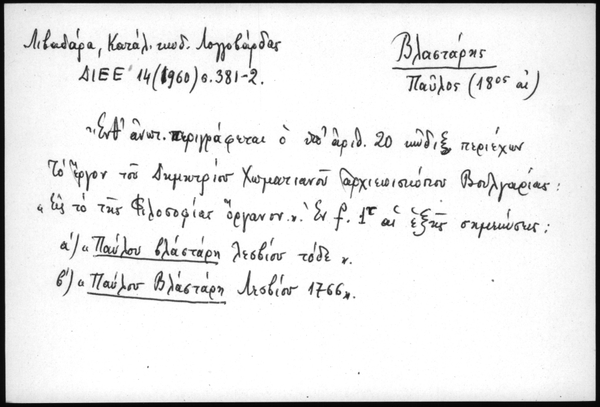 Λιβαδάρα, Κατάλ. κωδ. Λογγοβάρδας
ΔΙΕΕ 14 (1960) σ. 381-2.
Βλαστάρης
Παῦλος (18ος αἰ)
Ἔνθ' ἀνωτ. περιγράφεται ὁ ὑπ' ἀριθ. 20 κῶδιξ περιέχων
τὸ ἔργον τοῦ Δημητρίου Χωματιανοῦ ἀρχιεπισκόπου Βουλγαρίας:
« εἰς τὸ τῆς Φιλοσοφίας ὄργανον ». Ἐν f. 1r αἱ ἑξῆς σημειώσεις:
α΄) « Παύλου βλάστάρη λεσβίου τόδε ».
β΄) « Παύλου Βλάστάρη Λεσβίου 1766 ».